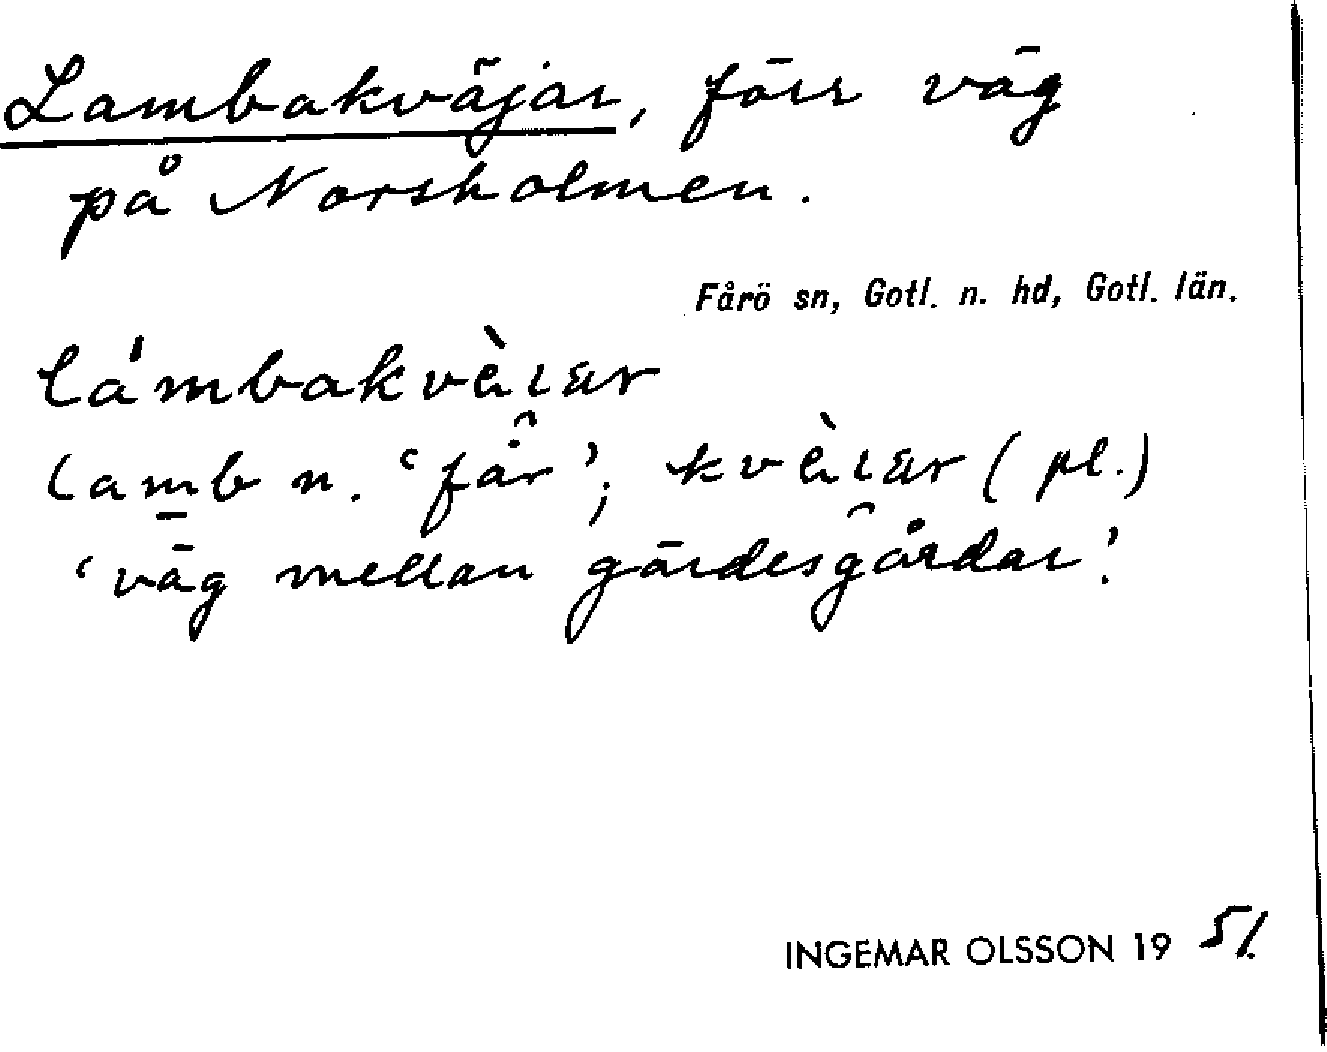 Lambakväjar, förr väg
på Norsholmen.
Fårö sn, Gotl. n. hd, Gotl. län.
lámbakvè̀ıar
lamb n. ‘får’; kvèıar (pl.)
‘väg mellan gärdesgårdar’.
INGEMAR OLSSON 19 51.